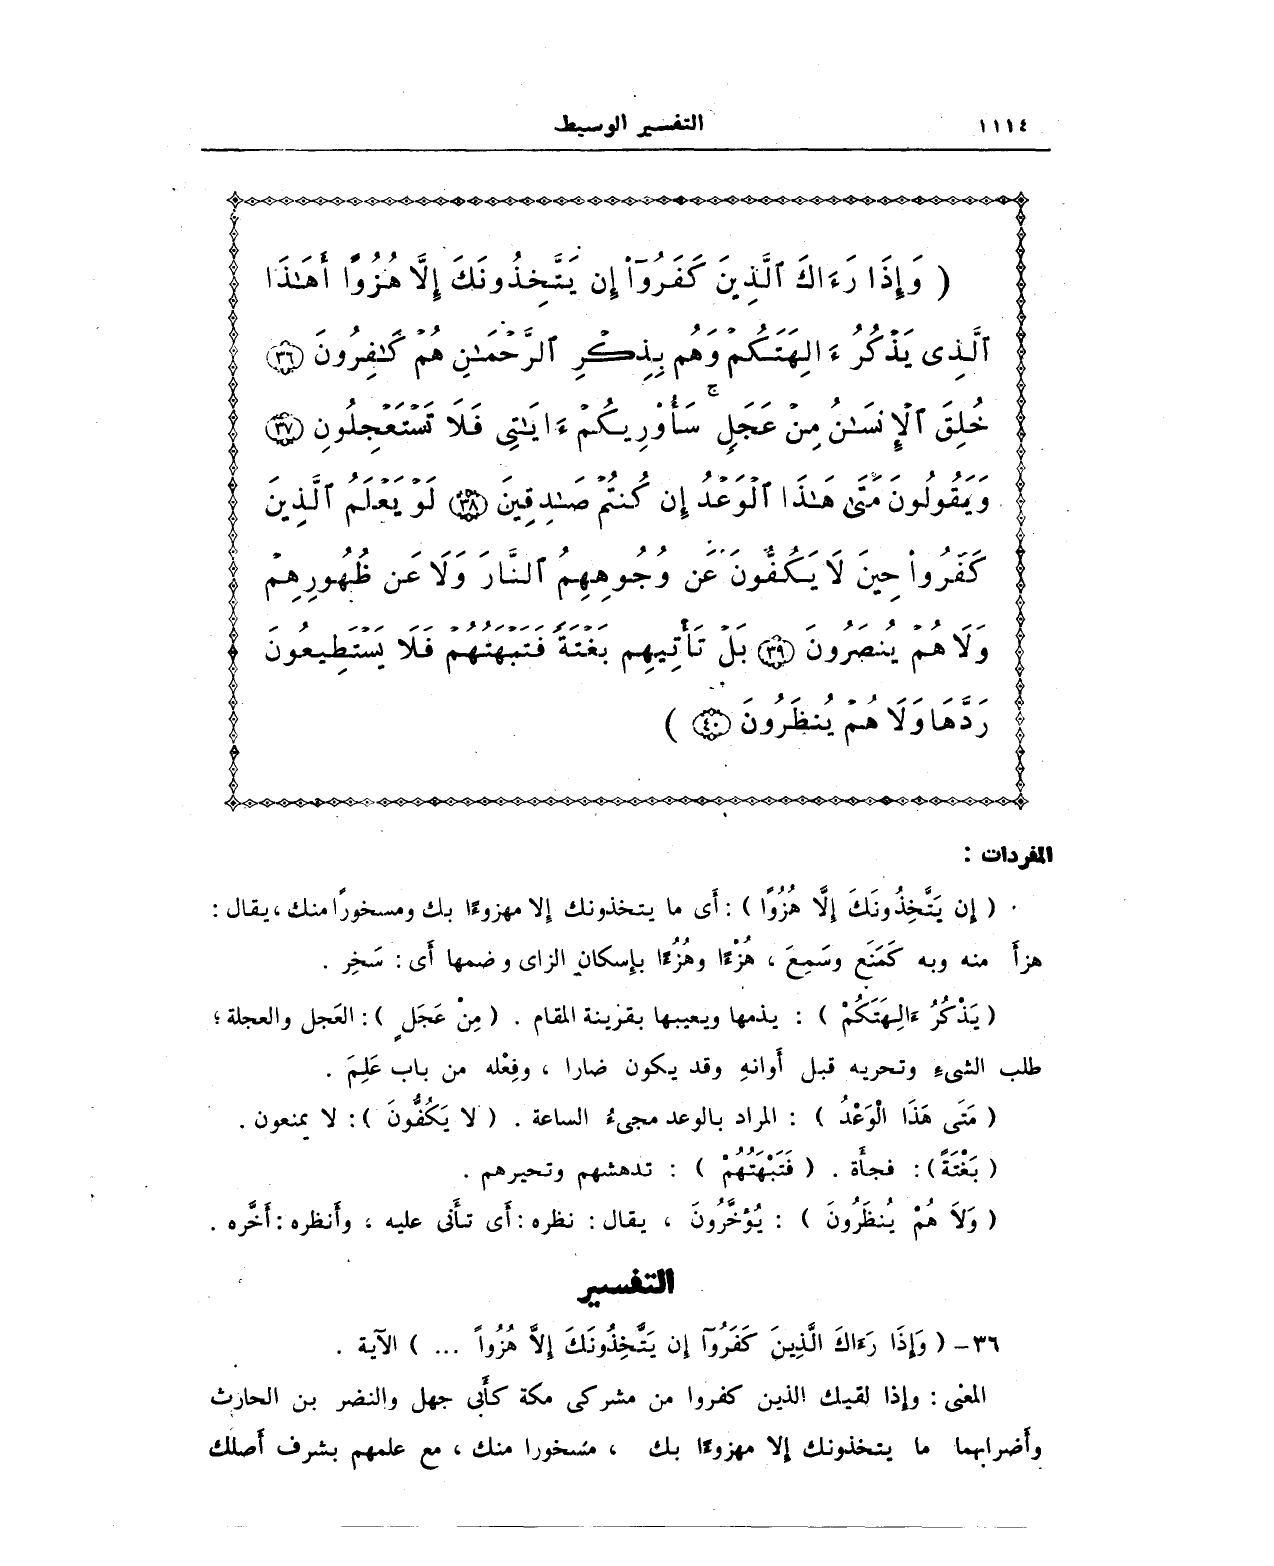 ١١١٤
التفسير الوسيط
( وَإِذَا رَءَاكَ ٱلَّذِينَ كَفَرُوٓا۟ إِن يَتَّخِذُونَكَ إِلَّا هُزُوًا أَهَـٰذَا
ٱلَّذِى يَذْكُرُ ءَالِهَتَكُمْ وَهُم بِذِكْرِ ٱلرَّحْمَـٰنِ هُمْ كَـٰفِرُونَ ٣٦
خُلِقَ ٱلْإِنسَـٰنُ مِنْ عَجَلٍ ۚ سَأُو۟رِيكُمْ ءَايَـٰتِى فَلَا تَسْتَعْجِلُونِ ٣٧
وَيَقُولُونَ مَتَىٰ هَـٰذَا ٱلْوَعْدُ إِن كُنتُمْ صَـٰدِقِينَ ٣٨ لَوْ يَعْلَمُ ٱلَّذِينَ
كَفَرُوا۟ حِينَ لَا يَكُفُّونَ عَن وُجُوهِهِمُ ٱلنَّارَ وَلَا عَن ظُهُورِهِمْ
وَلَا هُمْ يُنصَرُونَ ٣٩ بَلْ تَأْتِيهِم بَغْتَةً فَتَبْهَتُهُمْ فَلَا يَسْتَطِيعُونَ
رَدَّهَا وَلَا هُمْ يُنظَرُونَ ٤٠ )
المفردات :
( إِن يَتَّخِذُونَكَ إِلَّا هُزُوًا ) : أى ما يتخذونك إلا مهزوءًا بك ومسخورًا منك ، يقال :
هزأ منه وبه كَمَنَع وسَمِعَ ، هُزْءًا وهُزُءًا بإسكان الزاى وضمها أى : سَخِر .
( يَذْكُرُ ءَالِهَتَكُمْ ) : يذمها ويعيبها بقرينة المقام . ( مِنْ عَجَلٍ ) : العَجل والعجلة ؛
طلب الشىء وتحريه قبل أوانهِ وقد يكون ضارا ، وفِعْله من باب عَلِمَ .
( مَتَى هَذَا الْوَعْدُ ) : المراد بالوعد مجىءُ الساعة . ( لا يَكُفُّونَ ) : لا يمنعون .
( بَغْتَةً ) : فجأة . ( فَتَبْهَتُهُمْ ) : تدهشهم وتحيرهم .
( وَلَا هُمْ يُنظَرُونَ ) : يُؤخَّرُونَ ، يقال : نظره : أى تأَنى عليه ، وأَنظره : أَخَّره .
التفسير
٣٦ – ( وَإِذَا رَءَاكَ الَّذِينَ كَفَرُوٓا إِن يَتَّخِذُونَكَ إِلَّا هُزُواً ... ) الآية .
المعنى : وإذا لقيك الذين كفروا من مشركى مكة كأَبى جهل والنضر بن الحارث
وأَضرابهما ما يتخذونك إلا مهزوءًا بك ، مسخورا منك ، مع علمهم بشرف أَصلك